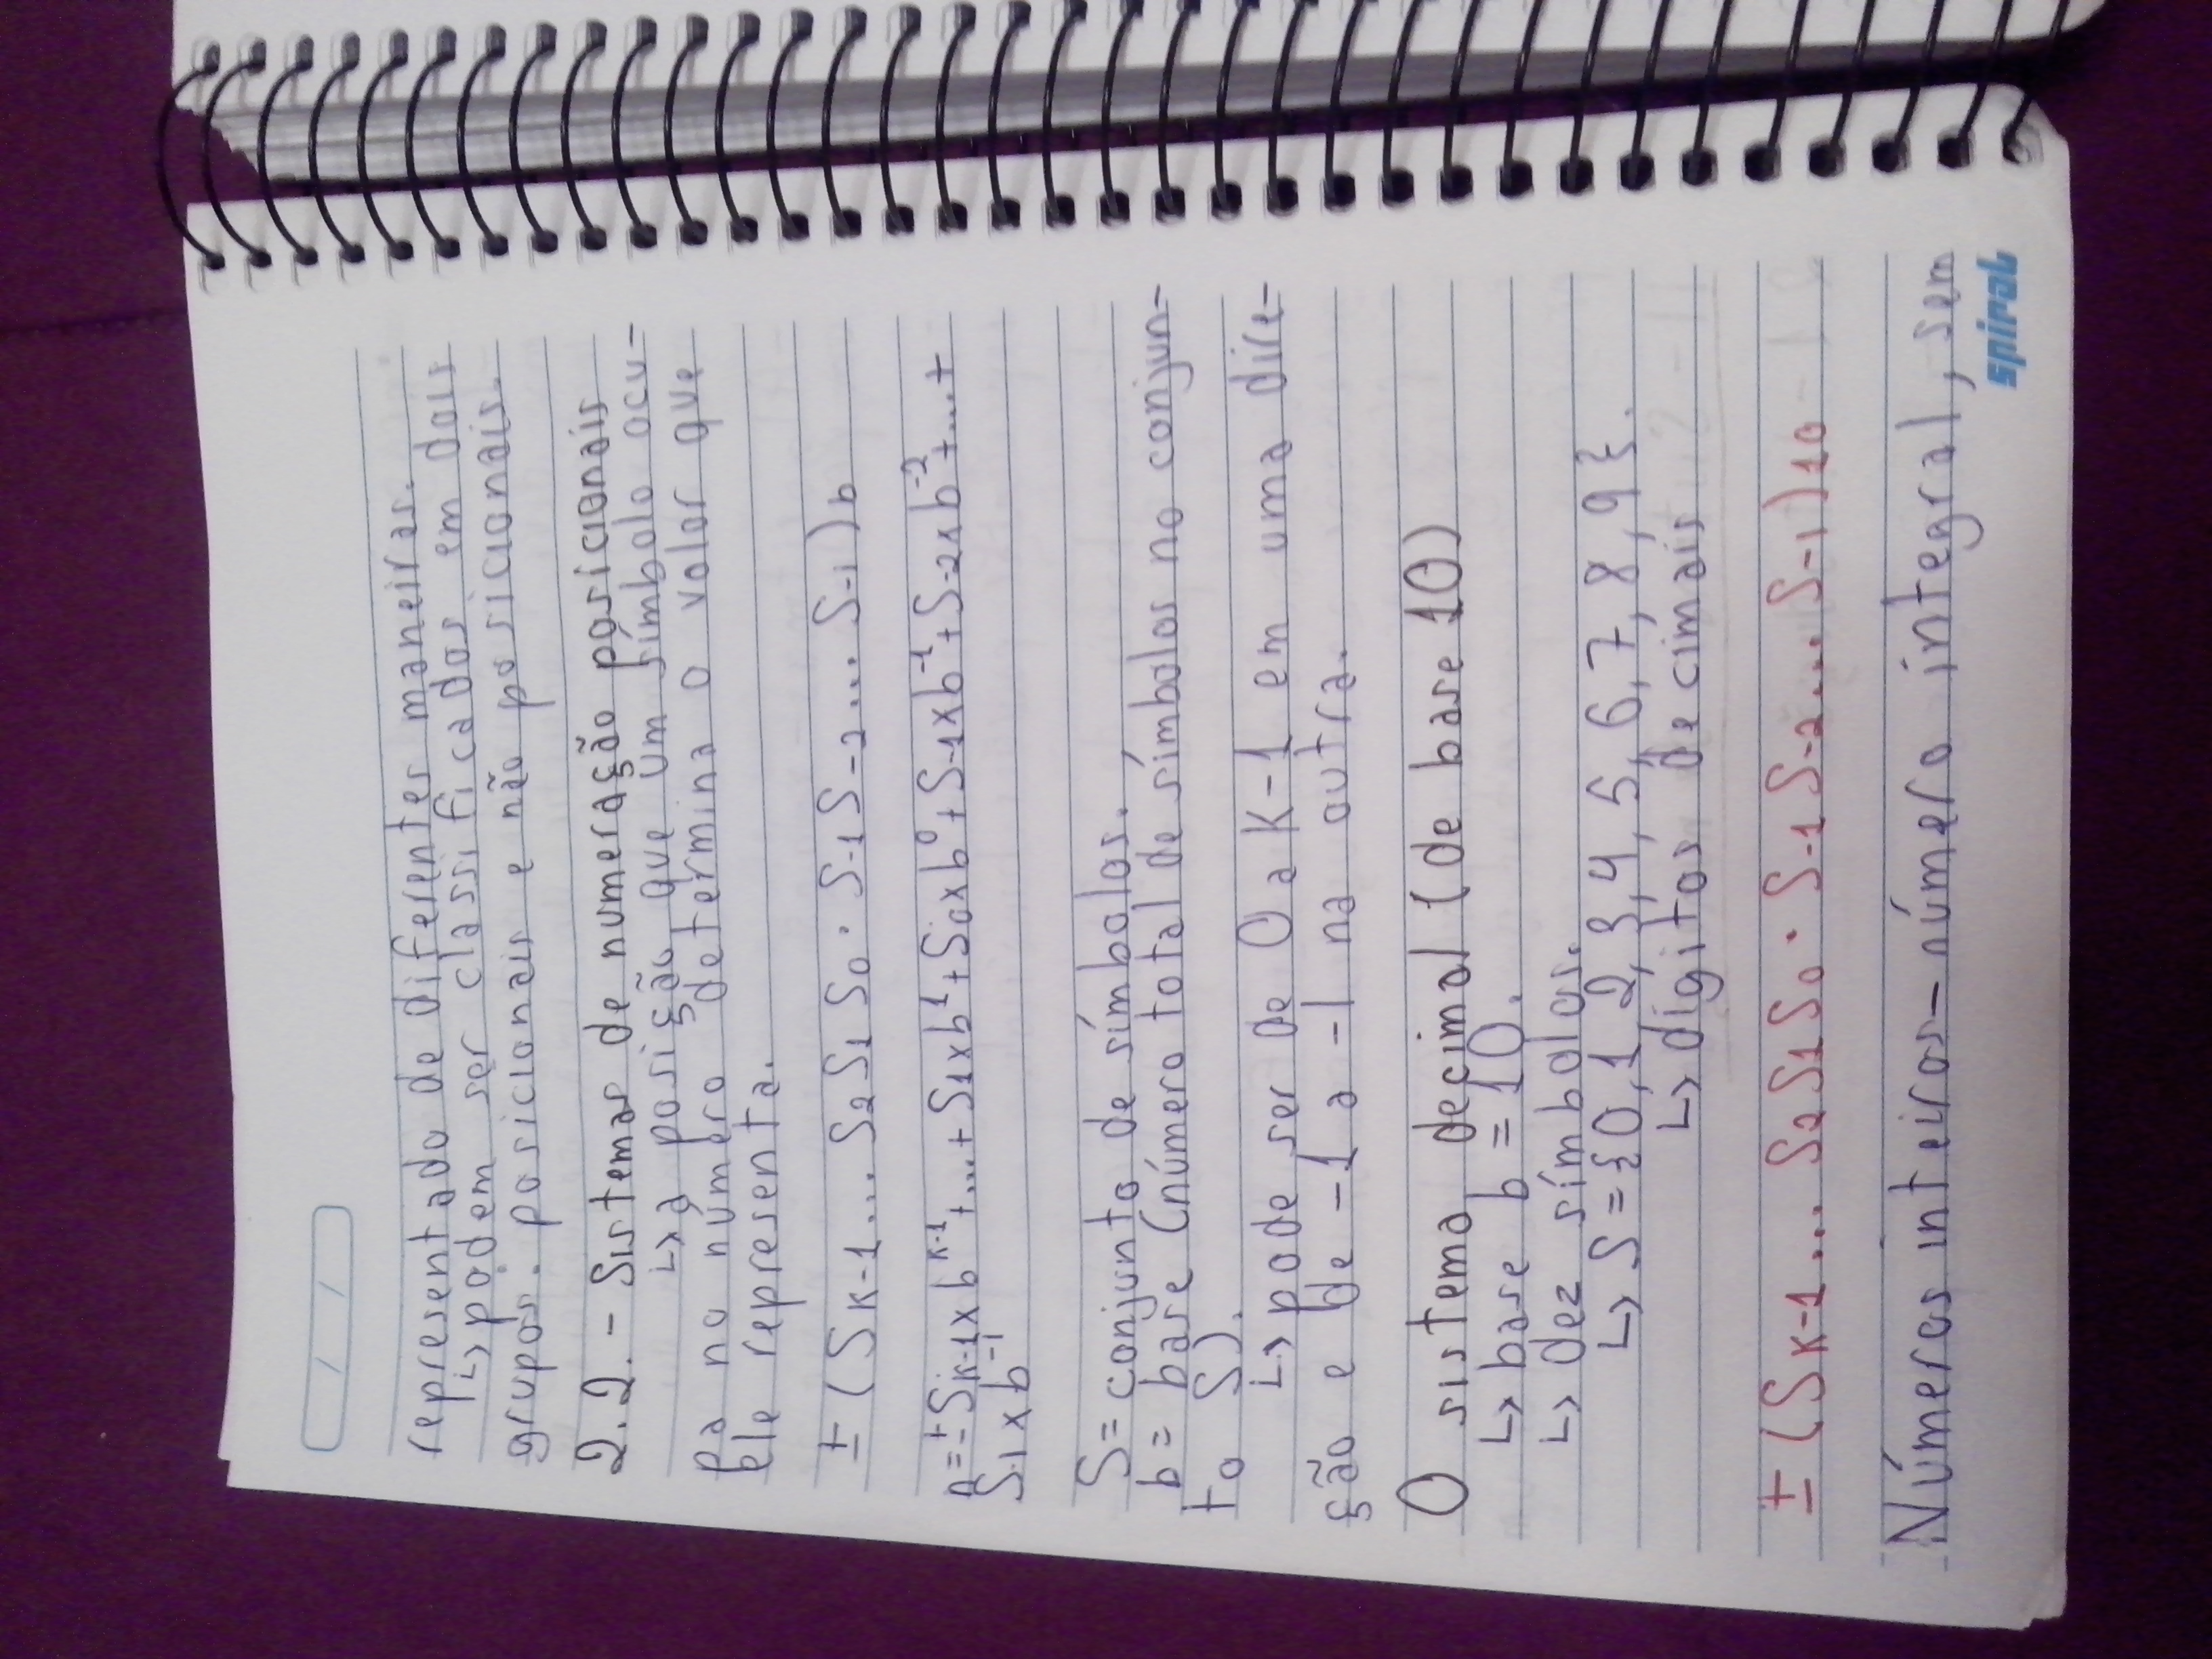 representado de diferentes maneiras.
↳ podem ser classificados em dois
grupos: posicionais e não posicionais.
2.2. - Sistemas de numeração posicionais
↳ a posição que um símbolo ocu-
pa no número determina o valor que
ele representa.
± (SK-1... S2 S1 S0 . S-1 S-2... S-l)b
n = ± SK-1 x b^K-1 + ... + S1 x b^1 + S0 x b^0 + S-1 x b^-1 + S-2 x b^-2 + ... +
S-l x b^-l
S = conjunto de símbolos.
b = base (número total de símbolos no conjun-
to S).
↳ pode ser de 0 a K-1 em uma dire-
ção e de -1 a -l na outra.
O sistema decimal (de base 10)
↳ base b = 10.
↳ dez símbolos.
↳ S = {0, 1, 2, 3, 4, 5, 6, 7, 8, 9}.
↳ dígitos decimais
± (SK-1... S2 S1 S0 . S-1 S-2... S-l)10
Números inteiros - número integral, sem
spiral